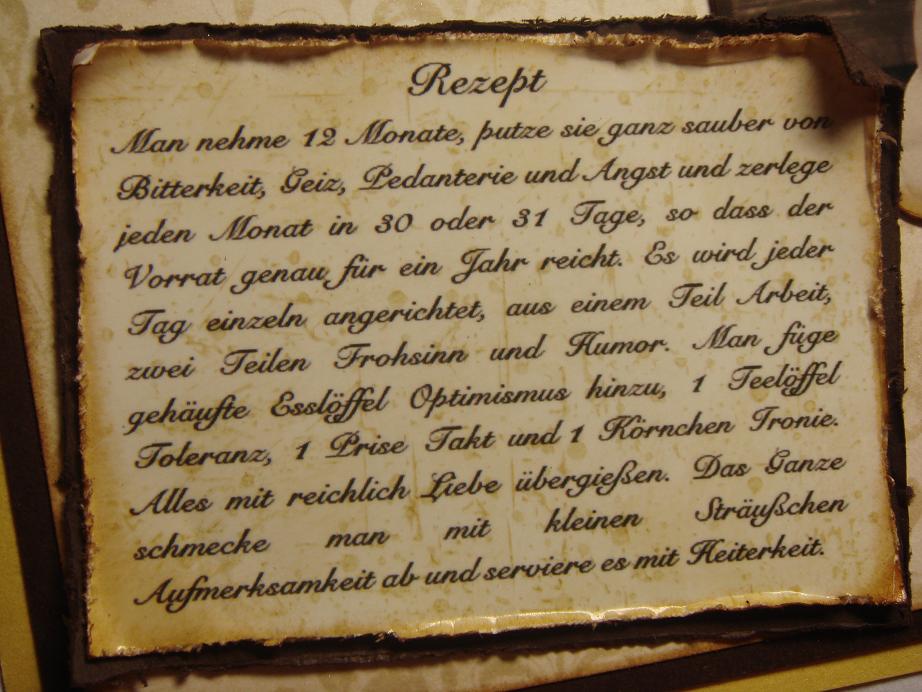 Rezept
Man nehme 12 Monate, putze sie ganz sauber von
Bitterkeit, Geiz, Pedanterie und Angst und zerlege
jeden Monat in 30 oder 31 Tage, so dass der
Vorrat genau für ein Jahr reicht. Es wird jeder
Tag einzeln angerichtet, aus einem Teil Arbeit,
zwei Teilen Frohsinn und Humor. Man füge
gehäufte Esslöffel Optimismus hinzu, 1 Teelöffel
Toleranz, 1 Prise Takt und 1 Körnchen Ironie.
Alles mit reichlich Liebe übergießen. Das Ganze
schmecke man mit kleinen Sträußchen
Aufmerksamkeit ab und serviere es mit Heiterkeit.